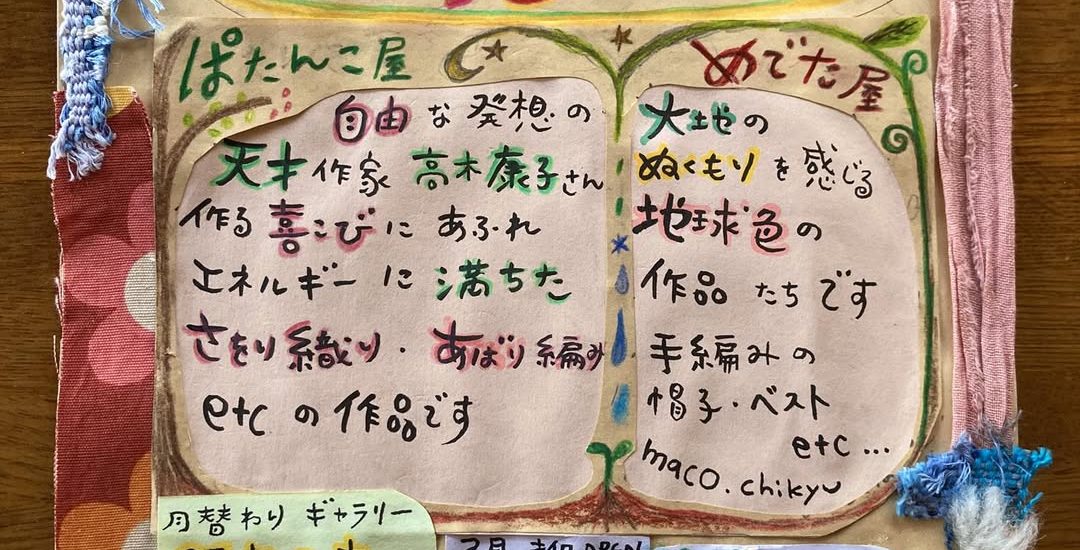 ぱたんこ屋
自由な発想の
天才作家 高木康子さん
作る喜こびに あふれ
エネルギーに 満ちた
さをり織り・あばり編み
etc の 作品です
めでた屋
大地の
ぬくもりを感じる
地球色の
作品たちです
手編みの
帽子・ベスト
etc...
maco.chikyu
月替わり ギャラリー